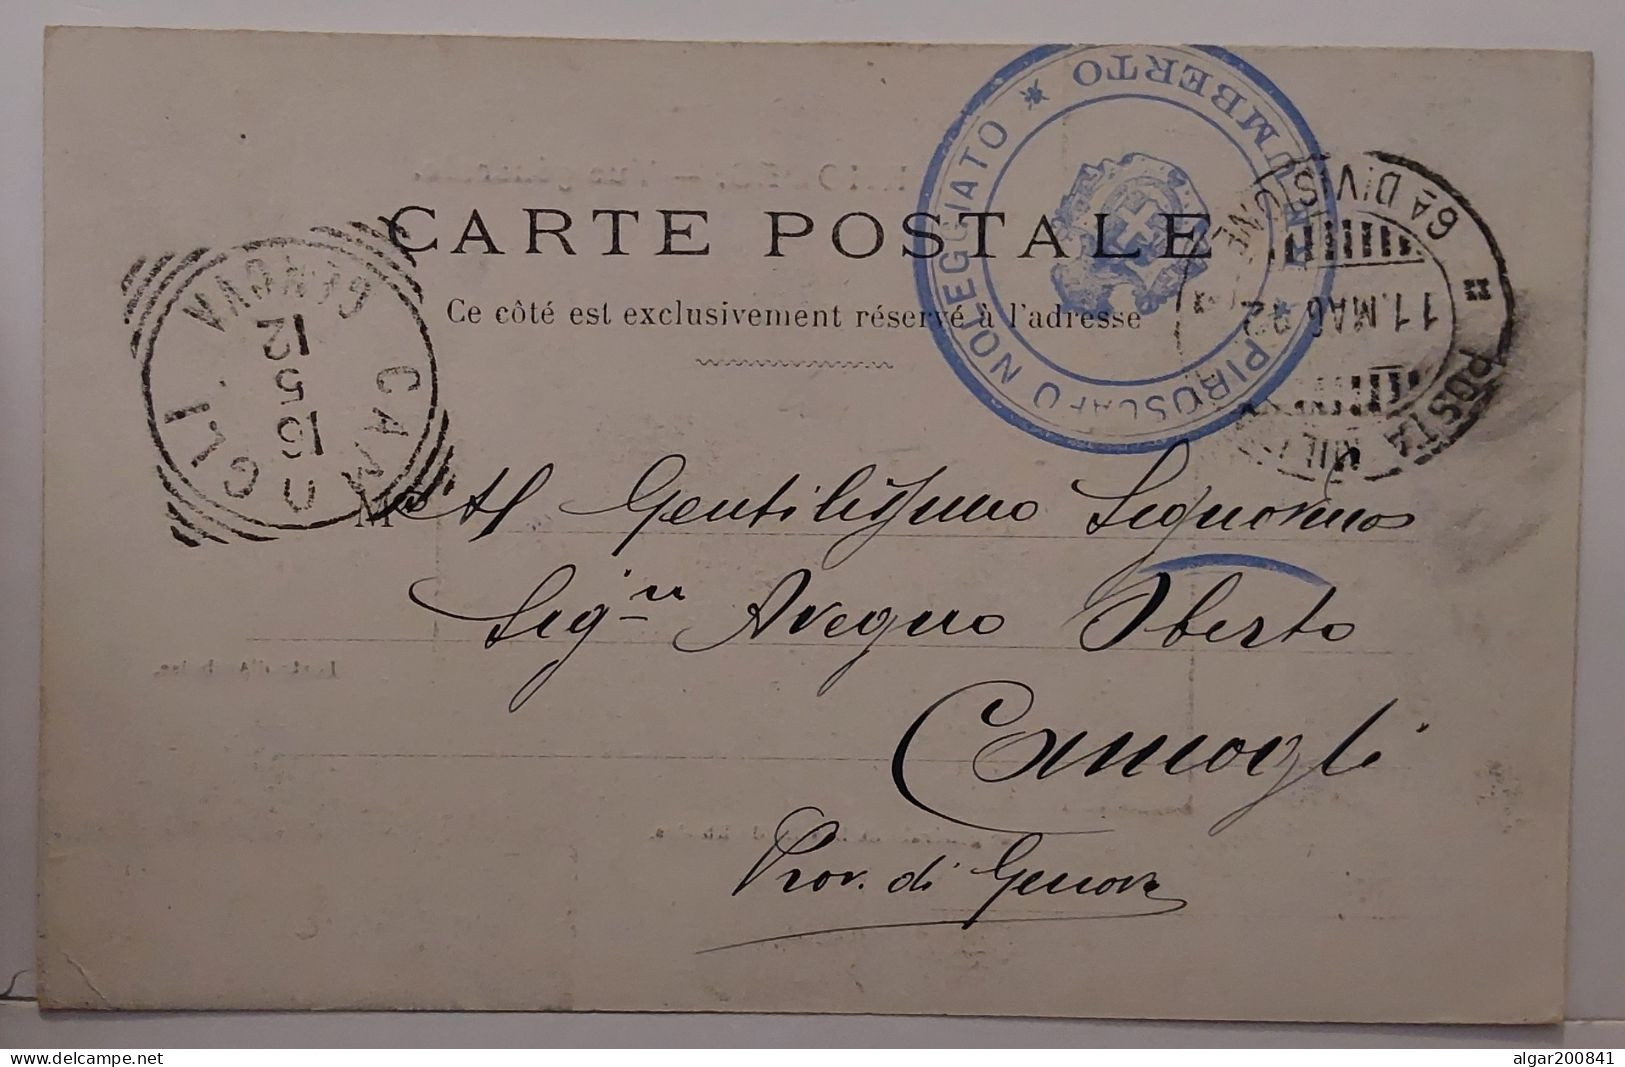 CARTE POSTALE
Ce côté est exclusivement réservé à l'adresse
PIROSCAFO NOLEGGIATO * RE UMBERTO *
POSTA MILITARE
6A DIVISIONE
11.MAG
12
CAMOGLI
GENOVA
12
5
16
M
Gentilissimo Signorino
Sig.n Avegno Oberto
Camogli
Prov. di Genova
delcampe.net
algar200841